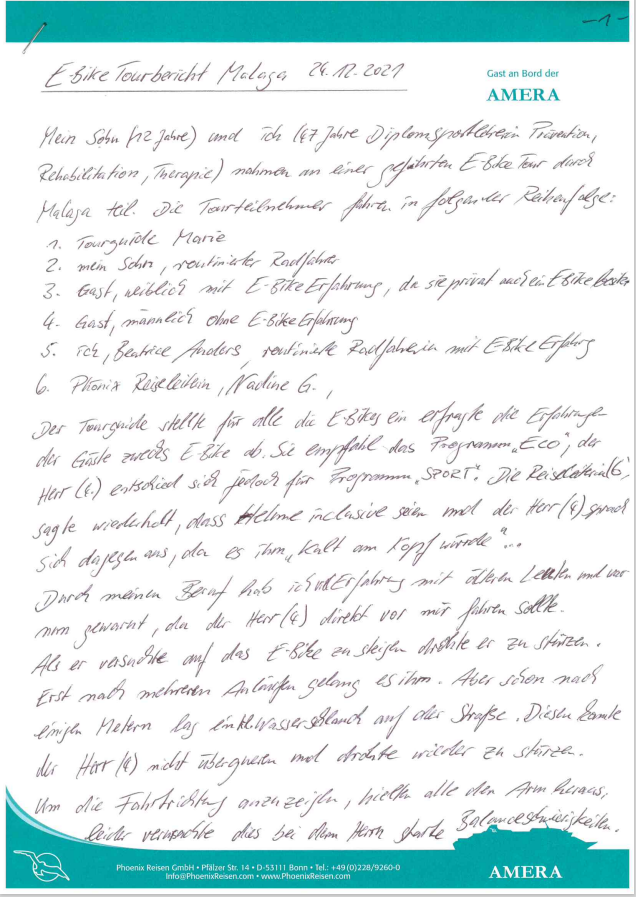 - 1 -
E-Bike Tourbericht Malaga 24.12.2021
Gast an Bord der
AMERA
Mein Sohn (12 Jahre) und ich (47 Jahre Diplomsportlehrerin Prävention,
Rehabilitation, Therapie) nahmen an einer geführten E-Bike Tour durch
Malaga teil. Die Tourteilnehmer fuhren in folgender Reihenfolge:
1. Tourguide Marie
2. mein Sohn, routinierter Radfahrer
3. Gast, weiblich mit E-Bike Erfahrung, da sie privat auch ein E-Bike
4. Gast, männlich ohne E-Bike Erfahrung
5. ich, Beatrice Anders, routinierte Radfahrerin mit E-Bike Erfahrg
6. Phönix Reiseleiterin, Nadine G.,
Der Tourguide stellte für alle die E-Bikes ein erfragte die Erfahrunge-
der Gäste zwecks E-Bike ab. Sie empfahl das Programm "Eco", der
Herr (4.) entschied sich jedoch für Programm "SPORT". Die Reiseleiterin (6)
sagte wiederholt, dass Helme inclusive seien und der Herr (4) sprach
sich dagegen aus, da es ihm "kalt am Kopf würde"...
Durch meinen Beruf hab ich Erfahrung mit älteren Leuten und war
nun gewarnt, da der Herr (4) direkt vor mir fahren sollte.
Als er versuchte auf das E-Bike zu steigen drohte er zu stürzen.
Erst nach mehreren Anläufen gelang es ihm. Aber schon nach
einigen Metern lag ein Wasserschlauch auf der Straße. Diesen konnte
der Herr (4) nicht überqueren und drohte wieder zu stürzen.
Um die Fahrtrichtung anzuzeigen, hielten alle den Arm heraus,
leider verursachte dies bei dem Herrn starke Balanceschwierigkeiten.
Phoenix Reisen GmbH • Pfälzer Str. 14 • D-53111 Bonn • Tel.: +49(0)228/9260-0
Info@PhoenixReisen.com • www.PhoenixReisen.com
AMERA